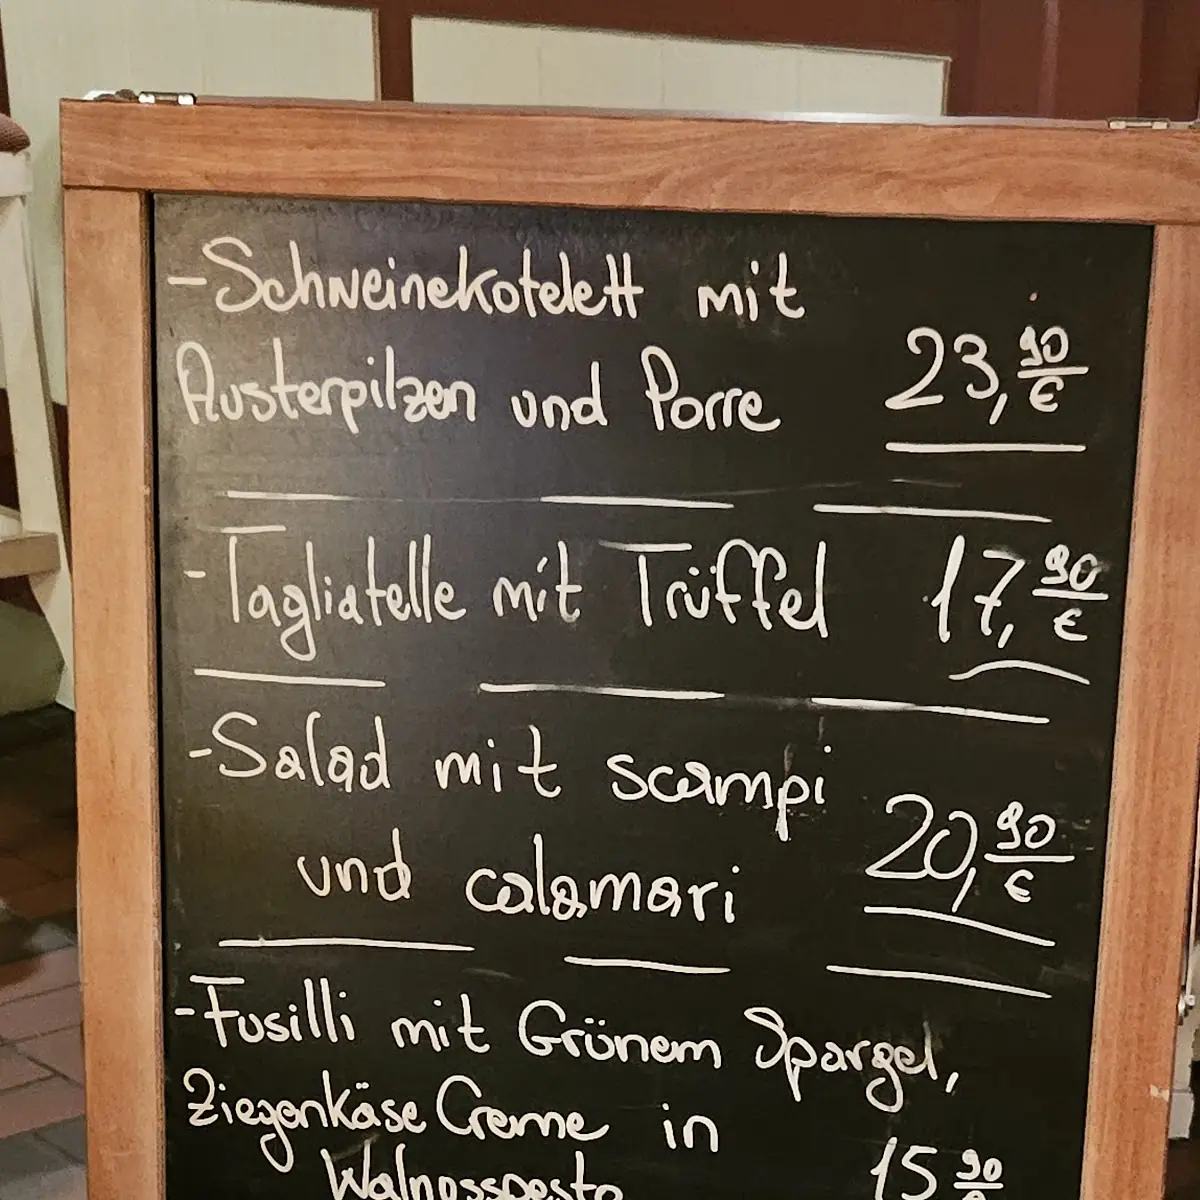 -Schweinekotelett mit
Austerpilzen und Porre 23,90 €
-Tagliatelle mit Trüffel 17,90 €
-Salad mit scampi
und calamari 20,90 €
-Fusilli mit Grünem Spargel,
Ziegenkäse Creme in
Walnusspesto 15,90